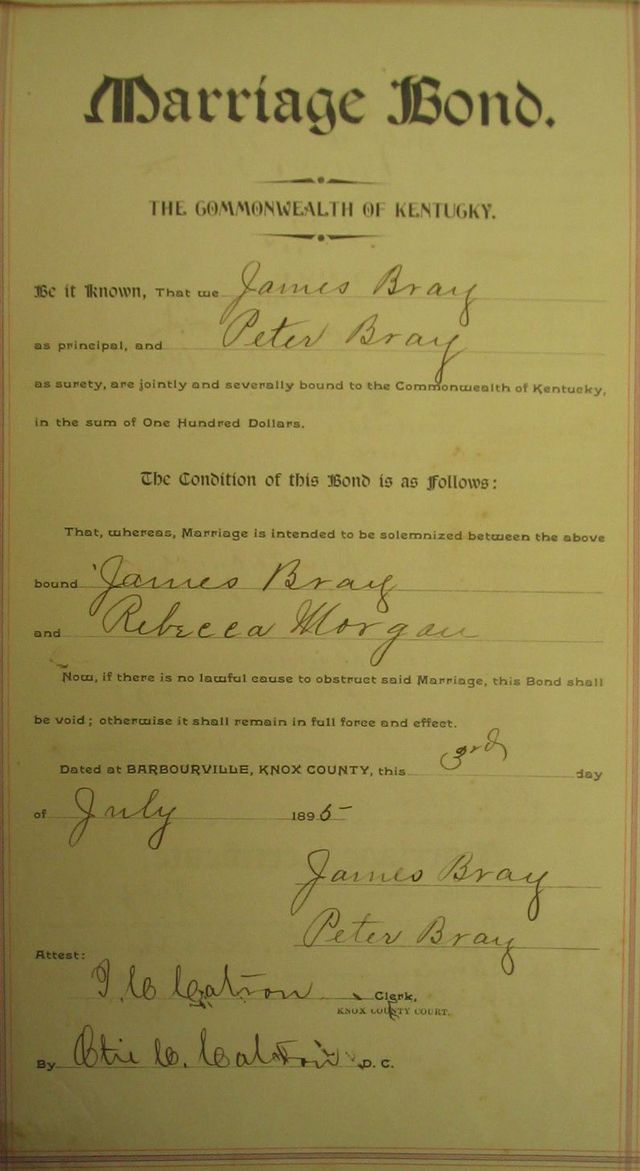 Marriage Bond.
THE COMMONWEALTH OF KENTUCKY.
Be it Known, That we James Bray
as principal, and Peter Bray
as surety, are jointly and severally bound to the Commonwealth of Kentucky,
in the sum of One Hundred Dollars.
The Condition of this Bond is as Follows:
That, whereas, Marriage is intended to be solemnized between the above
bound James Bray
and Rebecca Morgan
Now, if there is no lawful cause to obstruct said Marriage, this Bond shall
be void; otherwise it shall remain in full force and effect.
Dated at BARBOURVILLE, KNOX COUNTY, this 3rd day
of July 1895
James Bray
Peter Bray
Attest:
Catron Clerk,
KNOX COUNTY COURT.
By C. Catron D. C.